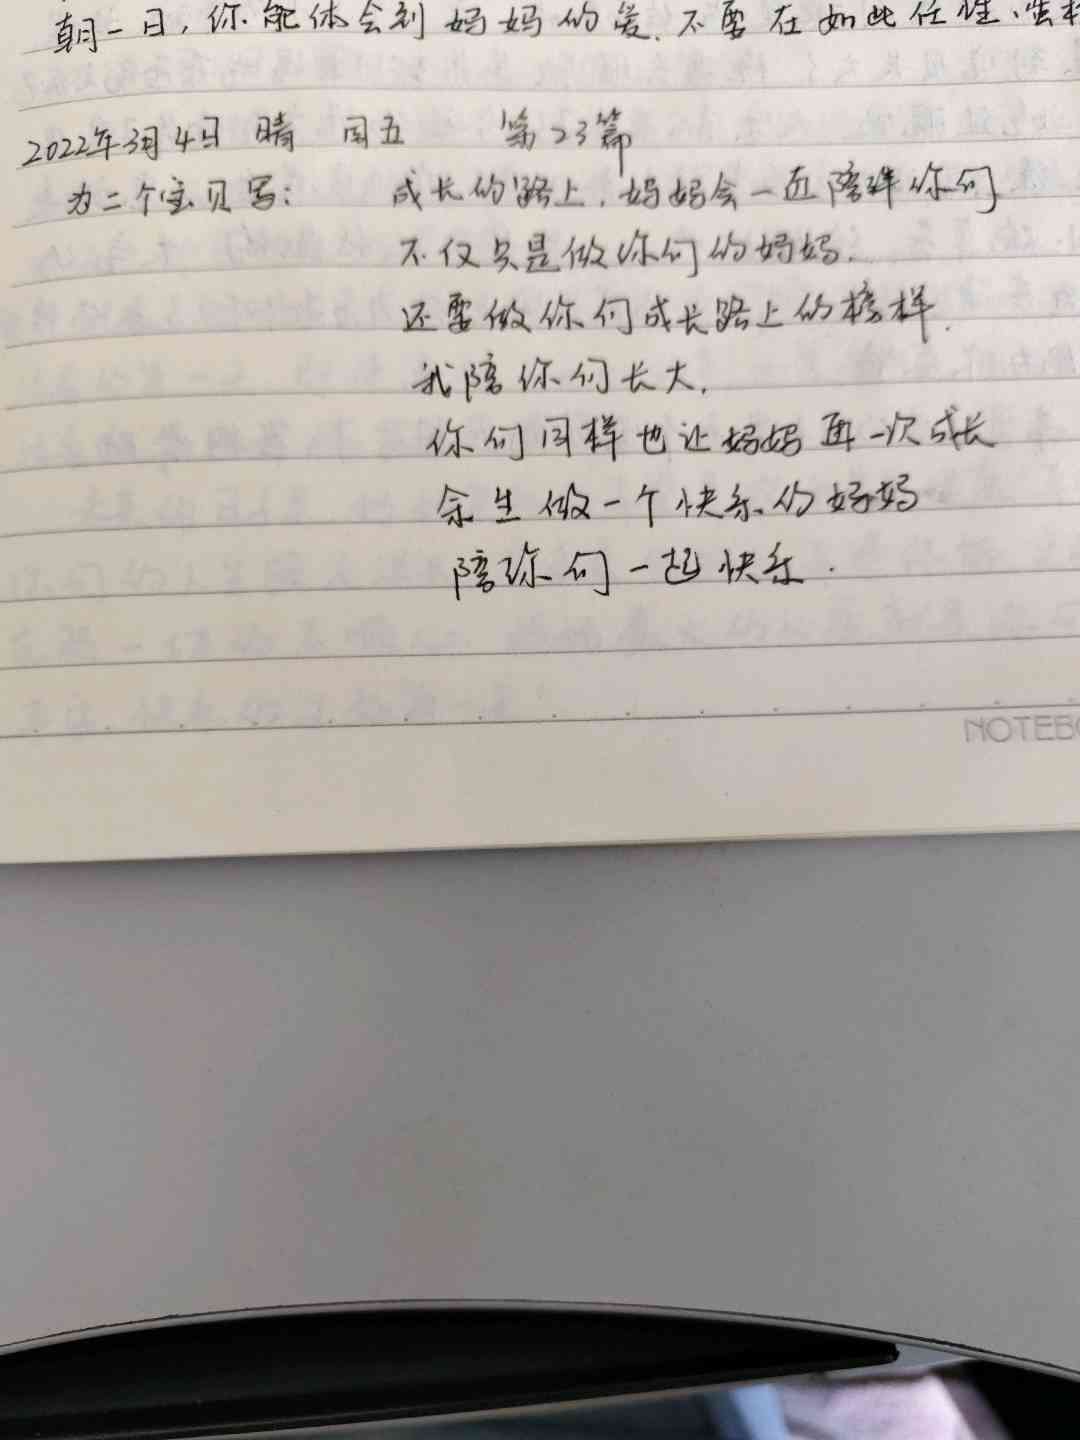 朝一日,你能体会到妈妈的爱.不要在如此任性、
2022年3月4日 晴 周五 第23篇
为二个宝贝写: 成长的路上.妈妈会一直陪伴你们
不仅只是做你们的妈妈.
还要做你们成长路上的榜样.
我陪你们长大.
你们同样也让妈妈再一次成长
余生做一个快乐的妈妈
陪你们一起快乐.
NOTEBO